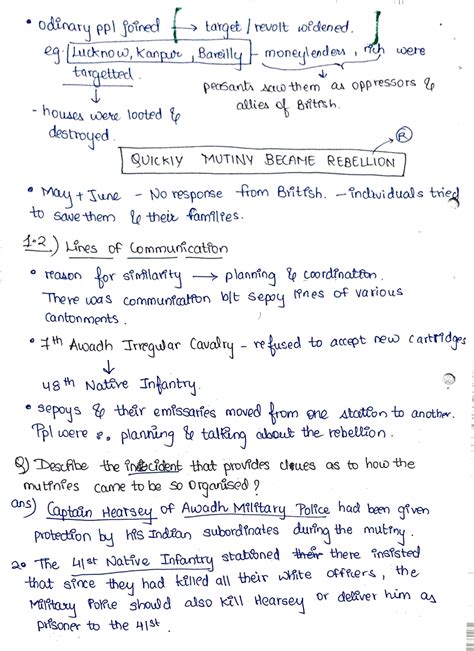 • odinary ppl joined → target / revolt widened.
eg. Lucknow, Kanpur, Bareilly - moneylenders, rich were
targetted.
↓
peasants saw them as oppressors &
allies of British.
- houses were looted &
destroyed.
R
QUICKLY MUTINY BECAME REBELLION
• May + June - No response from British. - individuals tried
to save them & their families.
1.2.) Lines of Communication
• reason for similarity → planning & coordination.
There was communication b/t sepoy lines of various
cantonments.
• 7th Awadh Irregular Cavalry - refused to accept new cartridges
↓
48th Native Infantry.
• sepoys & their emissaries moved from one station to another.
Ppl were ∴ planning & talking about the rebellion.
Q) Describe the incident that provides clues as to how the
mutinies came to be so organised?
ans) Captain Hearsey of Awadh Military Police had been given
protection by his Indian subordinates during the mutiny.
2. The 41st Native Infantry stationed their there insisted
that since they had killed all their white officers, the
Military Police should also kill Hearsey or deliver him as
prisoner to the 41st.